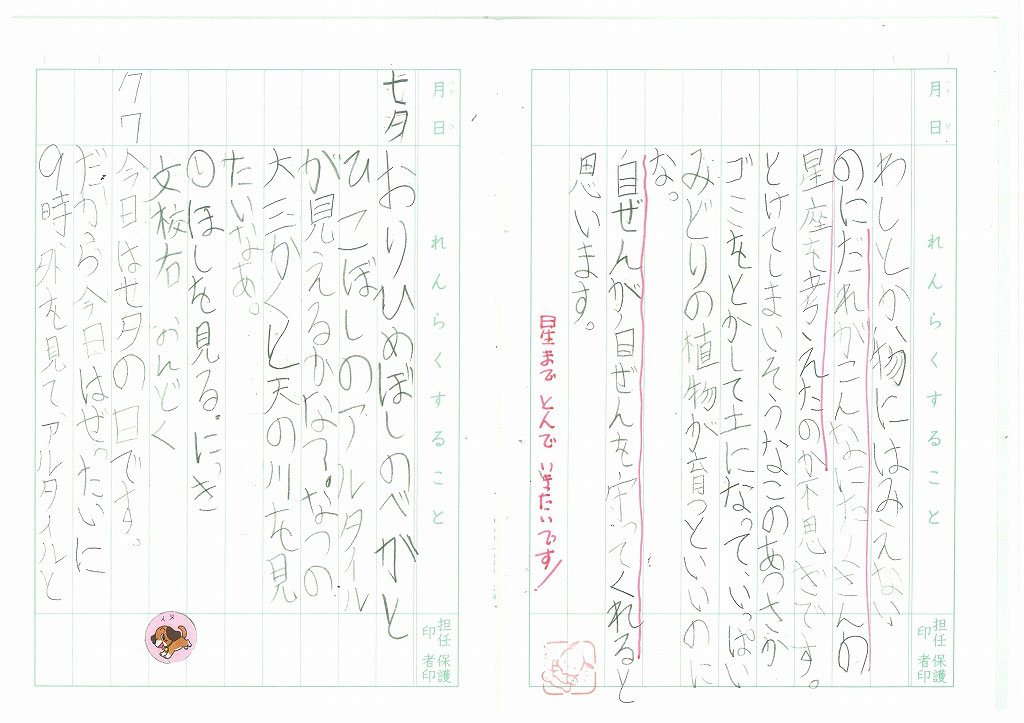 月日
れんらくすること
担任印
保護者印
わしとか、物にはみえない
のにだれがこんなにたくさんの
星座も考えたのか不思ぎです。
とけてしまいそうなこのあつさが
ゴミをとかして土になって、いっぱい
みどりの植物が育っといいのに
な。
自ぜんが自ぜんを守ってくれると
思います。
星まで とんで いきたいです!
月日
れんらくすること
担任印
保護者印
七夕 おりひめぼしのべがと
ひこぼしのアルタイル
が見えるかな?。なつの
大三かくと天の川を見
たいなあ。
①ほしを見る。にっき
文校右 おんどく
7 7 今日は七夕の日です。
だから今日はぜったいに
9時、外を見て、アルタイルと
イヌ